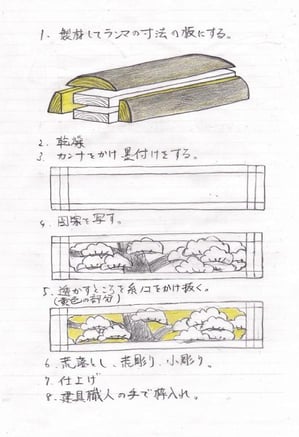 1. 製材してランマの寸法の板にする。
2. 乾燥
3. カンナをかけ墨付けをする。
4. 図案を写す。
5. 透かすところを糸ノコをかけ抜く。
(黄色の部分)
6. 荒落とし、荒彫り、小彫り。
7. 仕上げ
8. 建具職人の手で枠入れ。